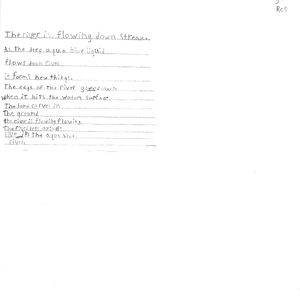 The river is flowing down stream.
As the deep aqua blue liquid
flows down river
it forms new things.
The edge of the river
when it hits the waters surface.
The land carves in
the ground
the river is flowing
The
live in the aqua blue
river.